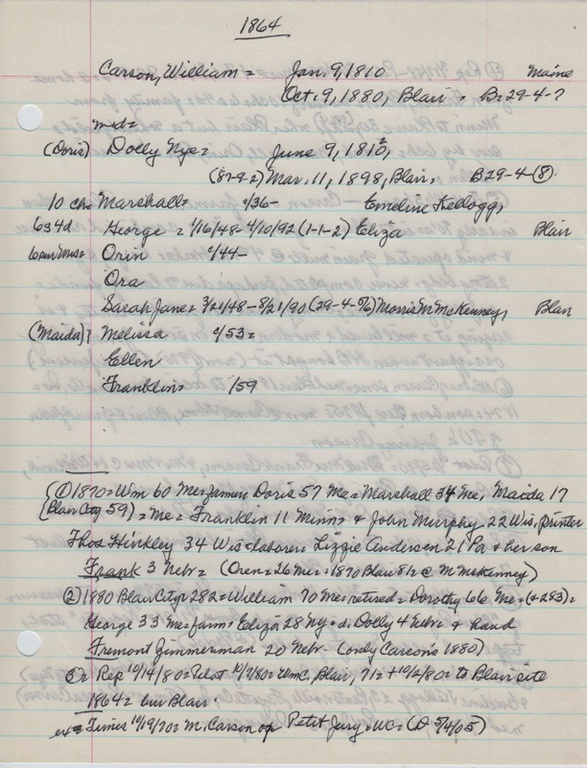 1864
Carson, William = Jan. 9, 1810 Maine
Oct. 9, 1880, Blair = B:29-4-7
md=
(Doris) Dolly Nye = June 9, 1810,
(87-9-2) Mar. 11, 1898, Blair, B29-4-(8)
10 chn Marshall = c/36- Emeline Kellogg,
6s4d George = 1/16/48-4/10/92 (1-1-2) Eliza Blair
Orin c/44-
Ora
Sarah Jane = 3/21/48-8/21/90 (29-4-5/6) Morris M McKenney, Blair
(Maida)? Melissa c/53=
Ellen
Franklin = /59
(1) 1870 = Wm 60 Me = farmer = Doris 57 Me = Marshall 34 Me, Maida 17
(Blair City 59) = Me = Franklin 11 Minn & John Murphy 22 Wis, printer
Thos Hinkley 34 Wis = laborer = Lizzie Andersen 21 Pa & her son
Frank 3 Nebr = (Oren = 26 Me = 1870 Blair 81 = @ M McKenney)
(2) 1880 Blair City = 282 = William 70 Me = retired = Dorothy 66 Me = (+283) =
George 33 Me = farm = Eliza 28 NY = d: Dolly 4 Nebr & hand
Fremont Zimmerman 20 Nebr = (only Carsons 1880)
Or Rep 10/14/80 = Pilot 10/7/80 = Wm C, Blair, 71 = + 10/2/80 = to Blair site
1864 = bur Blair.
Times 10/19/70 = M. Carson on Petit Jury = WC = (D 5/4/05)